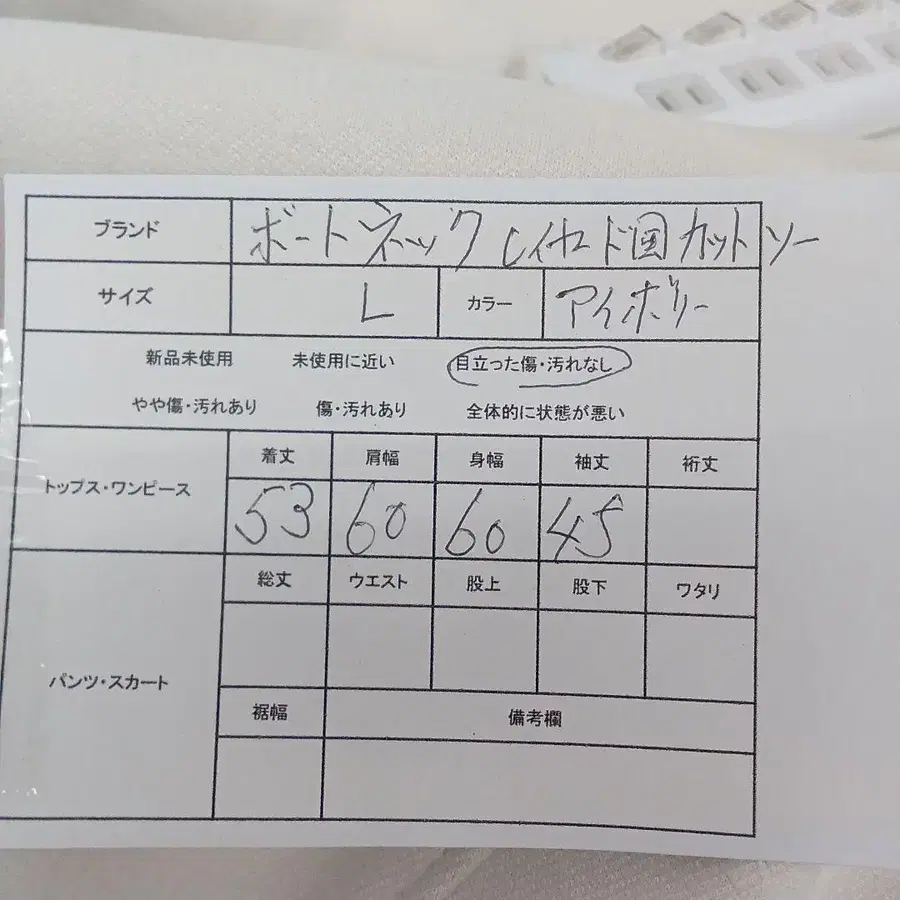 ブランド ボートネックレイヤード カットソー
サイズ L カラー アイボリー
新品未使用 未使用に近い 目立った傷・汚れなし
やや傷・汚れあり 傷・汚れあり 全体的に状態が悪い
トップス・ワンピース 着丈 肩幅 身幅 袖丈 裄丈
53 60 60 45
パンツ・スカート 総丈 ウエスト 股上 股下 ワタリ
裾幅 備考欄